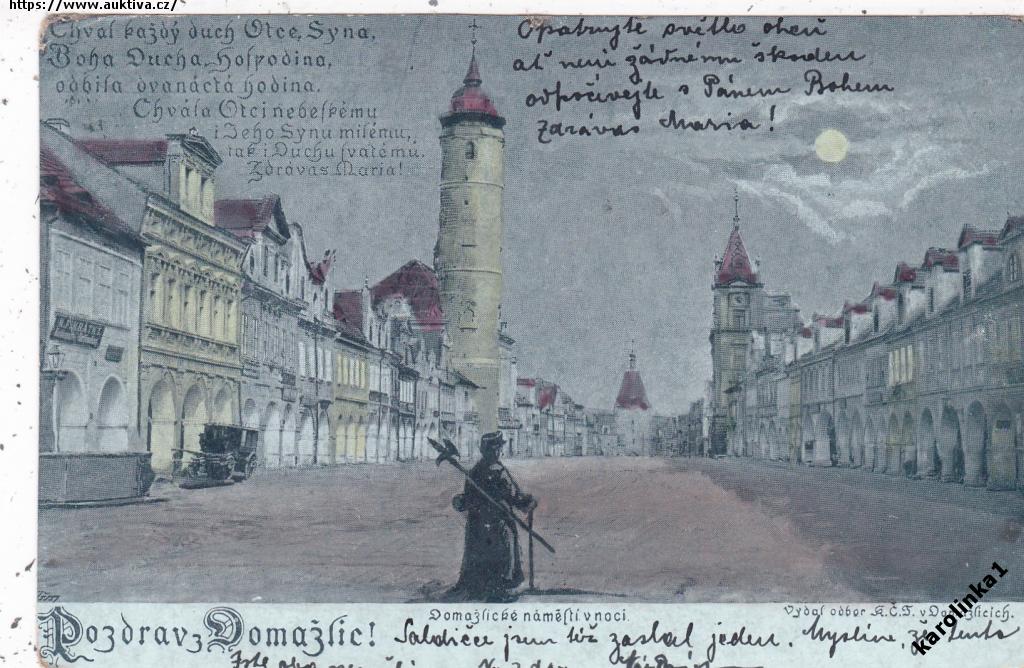 https://www.auktiva.cz/
Chval každý duch Otce, Syna,
Boha Ducha, Hospodina,
odbila dvanáctá hodina.
Chvála Otci nebeskému
i Jeho Synu milému,
tak i Duchu svatému.
Zdrávas Maria!
Opatrujte světlo oheň
ať není žádnému škoden
odpočívejte s Pánem Bohem
Zdrávas Maria!
Domažlické náměstí v noci.
Vydal odbor K.Č.T. v Domažlicích.
Pozdrav z Domažlic!
jsem též zaslal jeden. Myslíme, že tento
karolinka1